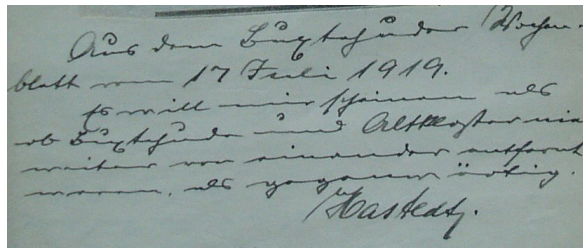 Aus dem Buxtehuder Wochen-
blatt vom 17 Juli 1919.
Es will mir scheinen als
ob Buxtehude und Altkloster nie
weiter von einander entfernt
waren, als gegenwärtig.
Hastedt.